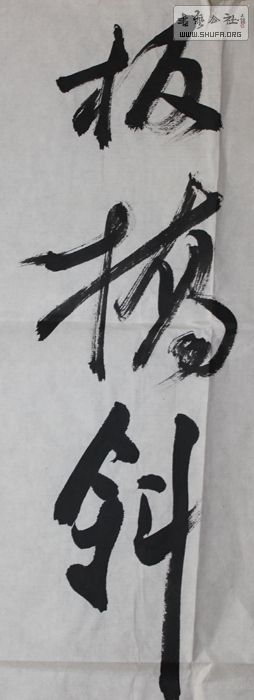 书艺公社
WWW.SHUFA.ORG
板桥斜